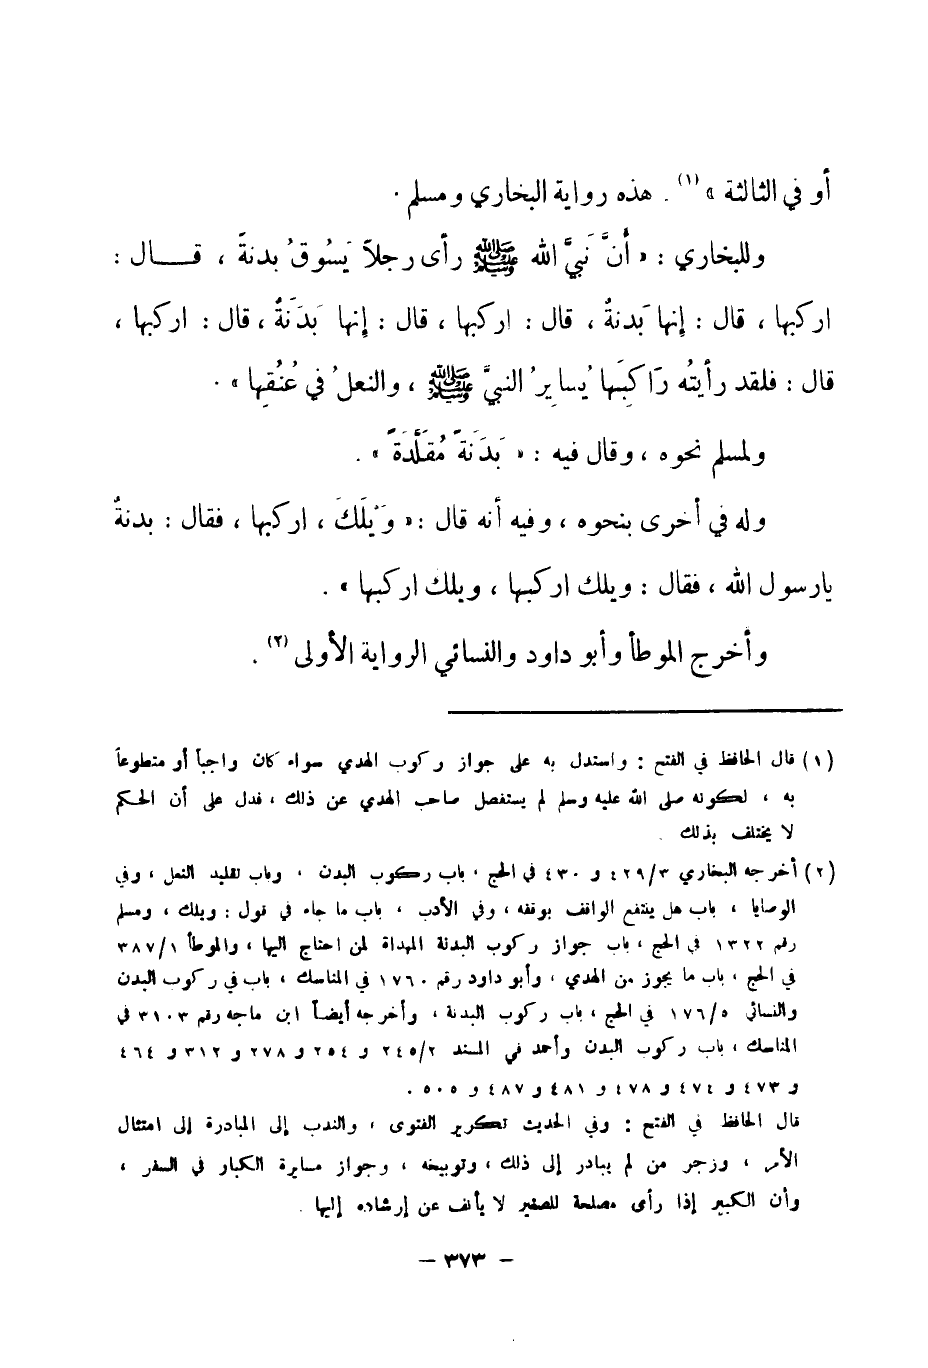 أو في الثالثة » (١) . هذه رواية البخاري ومسلم .
وللبخاري : « أَنَّ نَبيَّ الله ﷺ رأى رجلاً يَسُوقُ بدنةً ، قـــال :
اركبها ، قال : إنها بَدنةٌ ، قال : اركبها ، قال : إنها بَدَنَةٌ ، قال : اركبها ،
قال : فلقد رأيتُه رَاكِبَها يُسايِرُ النبيَّ ﷺ ، والنعلُ في عُنُقِها » .
ولمسلم نحوه ، وقال فيه : « بَدَنَةً مُقَلَّدَةً » .
وله في أخرى بنحوه ، وفيه أنه قال : « وَيْلَكَ ، اركبها ، فقال : بدنةٌ
يارسول الله ، فقال : ويلك اركبها ، ويلك اركبها » .
وأخرج الموطأ وأبو داود والنسائي الرواية الأولى (٢) .
(١) قال الحافظ في الفتح : واستدل به على جواز ركوب الهدي سواء كان واجباً أو متطوعاً
به ، لكونه صلى الله عليه وسلم لم يستفصل صاحب الهدي عن ذلك ، فدل على أن الحكم
لا يختلف بذلك .
(٢) أخرجه البخاري ٤٢٩/٣ و ٤٣٠ في الحج ، باب ركوب البدن ، وباب تقليد النعل ، وفي
الوصايا ، باب هل ينتفع الواقف بوقفه ، وفي الأدب ، باب ما جاء في قول : ويلك ، ومسلم
رقم ١٣٢٢ في الحج ، باب جواز ركوب البدنة المهداة لمن احتاج اليها ، والموطأ ٣٨٧/١
في الحج ، باب ما يجوز من الهدي ، وأبو داود رقم ١٧٦٠ في المناسك ، باب في ركوب البدن
والنسائي ١٧٦/٥ في الحج ، باب ركوب البدنة ، وأخرجه أيضاً ابن ماجه رقم ٣١٠٣ في
المناسك ، باب ركوب البدن وأحمد في المسند ٢٤٥/٢ و ٢٥٤ و ٢٧٨ و ٣١٢ و ٤٦٤
و ٤٧٣ و ٤٧٤ و ٤٧٨ و ٤٨١ و ٤٨٧ و ٥٠٥ .
قال الحافظ في الفتح : وفي الحديث تكرير الفتوى ، والندب إلى المبادرة إلى امتثال
الأمر ، وزجر من لم يبادر إلى ذلك ، وتوبيخه ، وجواز مسايرة الكبار في السفر ،
وأن الكبير إذا رأى مصلحة للصغير لا يأنف عن إرشاده إليها .
– ٣٧٣ –